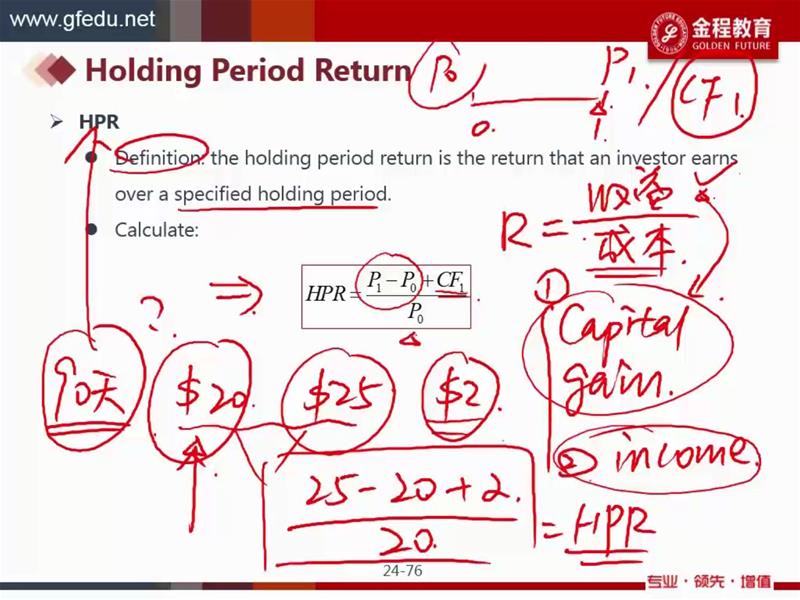 www.gfedu.net
金程教育
GOLDEN FUTURE
Holding Period Return
P0 P1 / CF1
0. 1
HPR
Definition: the holding period return is the return that an investor earns
over a specified holding period.
R = 收益 / 成本.
Calculate:
HPR = (P1 − P0 + CF1) / P0
① Capital
gain.
?
90天 $20. $25 $2
② income.
25 - 20 + 2. / 20. = HPR
24-76
专业·领先·增值